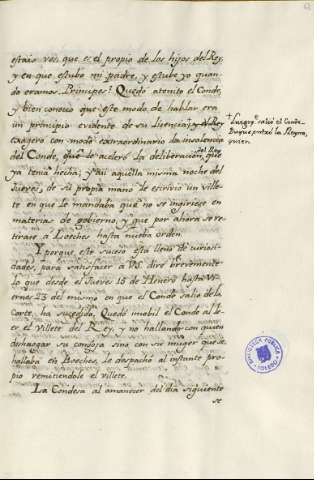 estais vos, que es el propio de los hijos del Rey,
y en que estubo mi padre, y estube yo quan-
do eramos Principes! Quedó atonito el Conde,
y bien conoció que este modo de hablar era
un principio evidente de su licencia,
exagero con modo extraordinario la insolencia
del Conde, que le aceleró la deliberacion, que
del Rey
ya tenia hecha; y asi aquella misma noche del
Jueves, de su propia mano le escrivió un ville-
te en que le mandaba que no se ingiriese en
materias de govierno, y que por ahora se re-
tirase à Loeches hasta nueba orden.
Y porque este suceso está lleno de curiosi-
dades, para satisfacer à VS. diré brevemente
lo que desde el Jueves 15 de Henero hasta Vi-
ernes 23 del mismo en que el Conde salió de la
Corte, ha sucedido. Quedó imobil el Conde al le-
er el villete del Rey, y no hallando con quien
deshaogar su congoja sino con su muger que se
hallaba en Loeches, le despachó al instante pro-
pio remitiendole el villete.
La Condesa al amanecer del dia siguiente
se
+ Luego salió el Conde
Duque entró la Reyna,
quien
BIBLIOTECA PUBLICA
TOLEDO